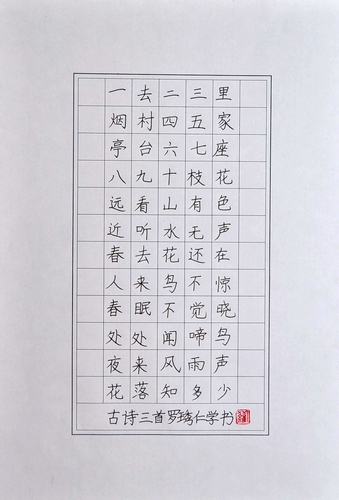 一去二三里
烟村四五家
亭台六七座
八九十枝花
远看山有色
近听水无声
春去花还在
人来鸟不惊
春眠不觉晓
处处闻啼鸟
夜来风雨声
花落知多少
古诗三首罗琇仁学书